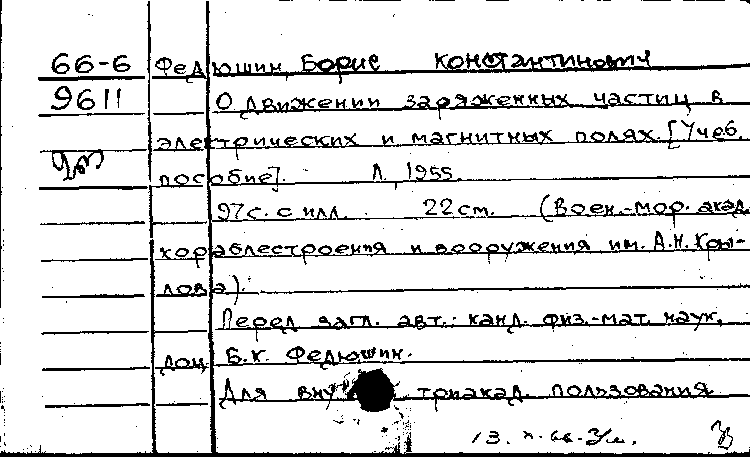 66-6 Федюшин, Борис Константинович
9611 О движении заряженных частиц в
электрических и магнитных полях. [Учеб.
пособие]. Л., 1955.
97с. с илл. 22см. (Воен.-мор. акад.
кораблестроения и вооружения им. А.Н. Кры-
лова).
Перед загл. авт.: канд. физ.-мат. наук,
доц. Б.К. Федюшин.
Для внутриакад. пользования
13.